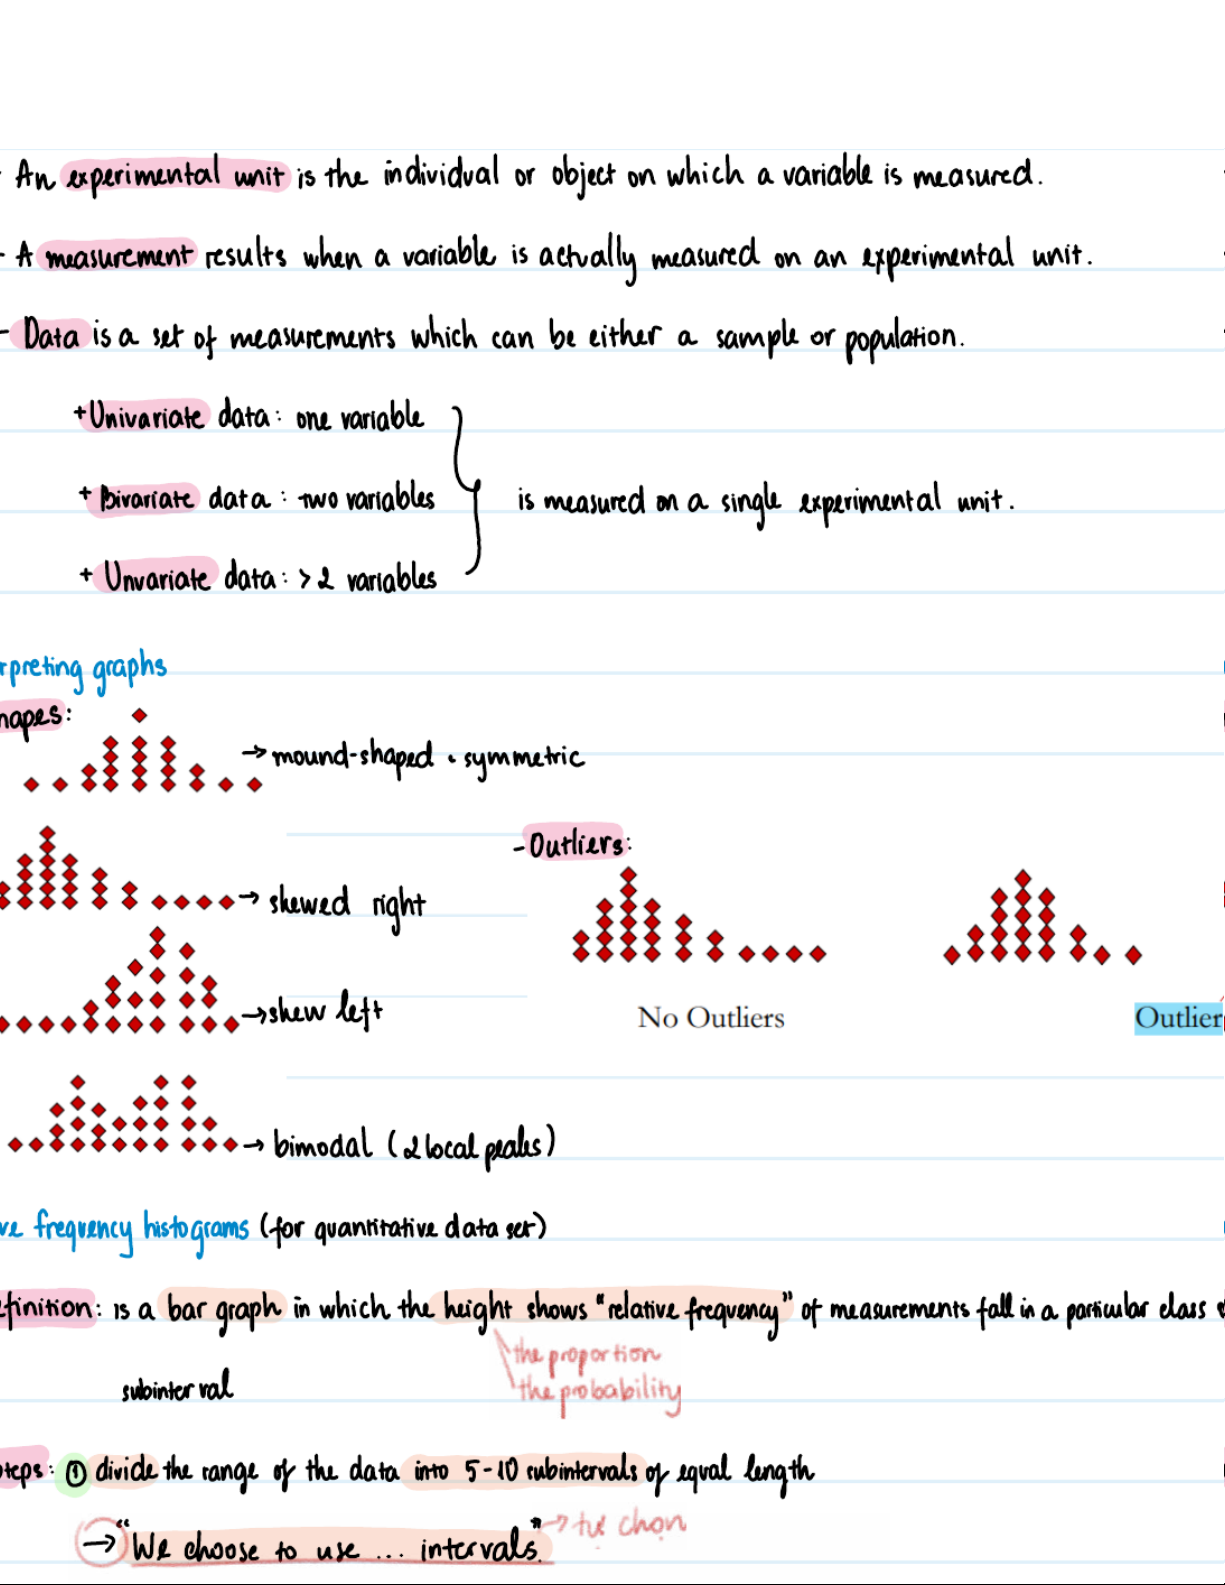 - An experimental unit is the individual or object on which a variable is measured.
- A measurement results when a variable is actually measured on an experimental unit.
- Data is a set of measurements which can be either a sample or population.
+ Univariate data: one variable
+ Bivariate data: two variables
is measured on a single experimental unit.
+ Unvariate data: > 2 variables
rpreting graphs
hapes:
→ mound-shaped • symmetric
- Outliers:
→ skewed right
→ skew left
No Outliers
Outlier
→ bimodal (2 local peaks)
ve frequency histograms (for quantitative data set)
efinition: is a bar graph in which the height shows "relative frequency" of measurements fall in a particular class
the proportion
the probability
subinterval
teps: ① divide the range of the data into 5-10 subintervals of equal length
→ "We choose to use ... intervals." → tự chọn